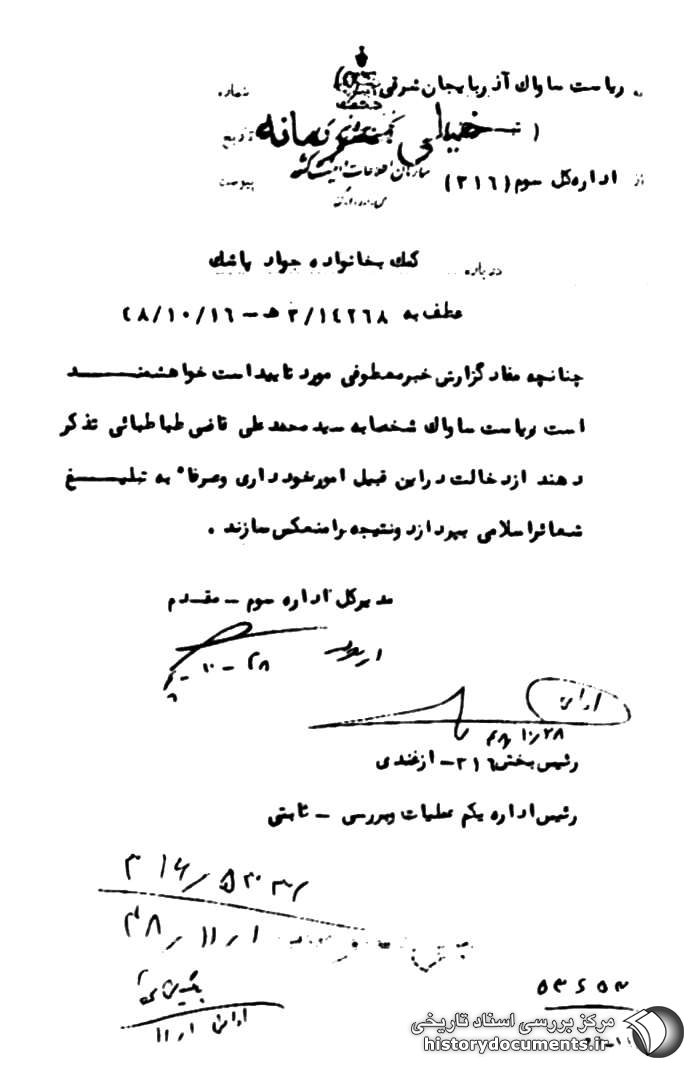 به ریاست ساواک آذربایجان شرقی
شماره
خیلی محرمانه
تاریخ
از اداره کل سوم (۳۱۶)
پیوست
سازمان اطلاعات و امنیت کشور
درباره کمک بخانواده جواد پاشک
عطف به ۳/۱۴۲۶۸ هـ – ۴۸/۱۰/۱۶
چنانچه مفاد گزارش خبر معطوفی مورد تایید است خواهشمند
است ریاست ساواک شخصا به سید محمد علی قاضی طباطبائی تذکر
دهند از دخالت در این قبیل امور خودداری و صرفا" به تبلیغ
شعائر اسلامی بپردازد و نتیجه را منعکس سازند .
مدیر کل اداره سوم – مقدم
۲۸ – ۱۰ –
۱۰/۲۸
رئیس بخش ۳۱۶ – ازغندی
رئیس اداره یکم عملیات و بررسی – ثابتی
۳۱۶/
۴۸/۱۱/۱
بایگانی
مرکز بررسی اسناد تاریخی
historydocuments.ir